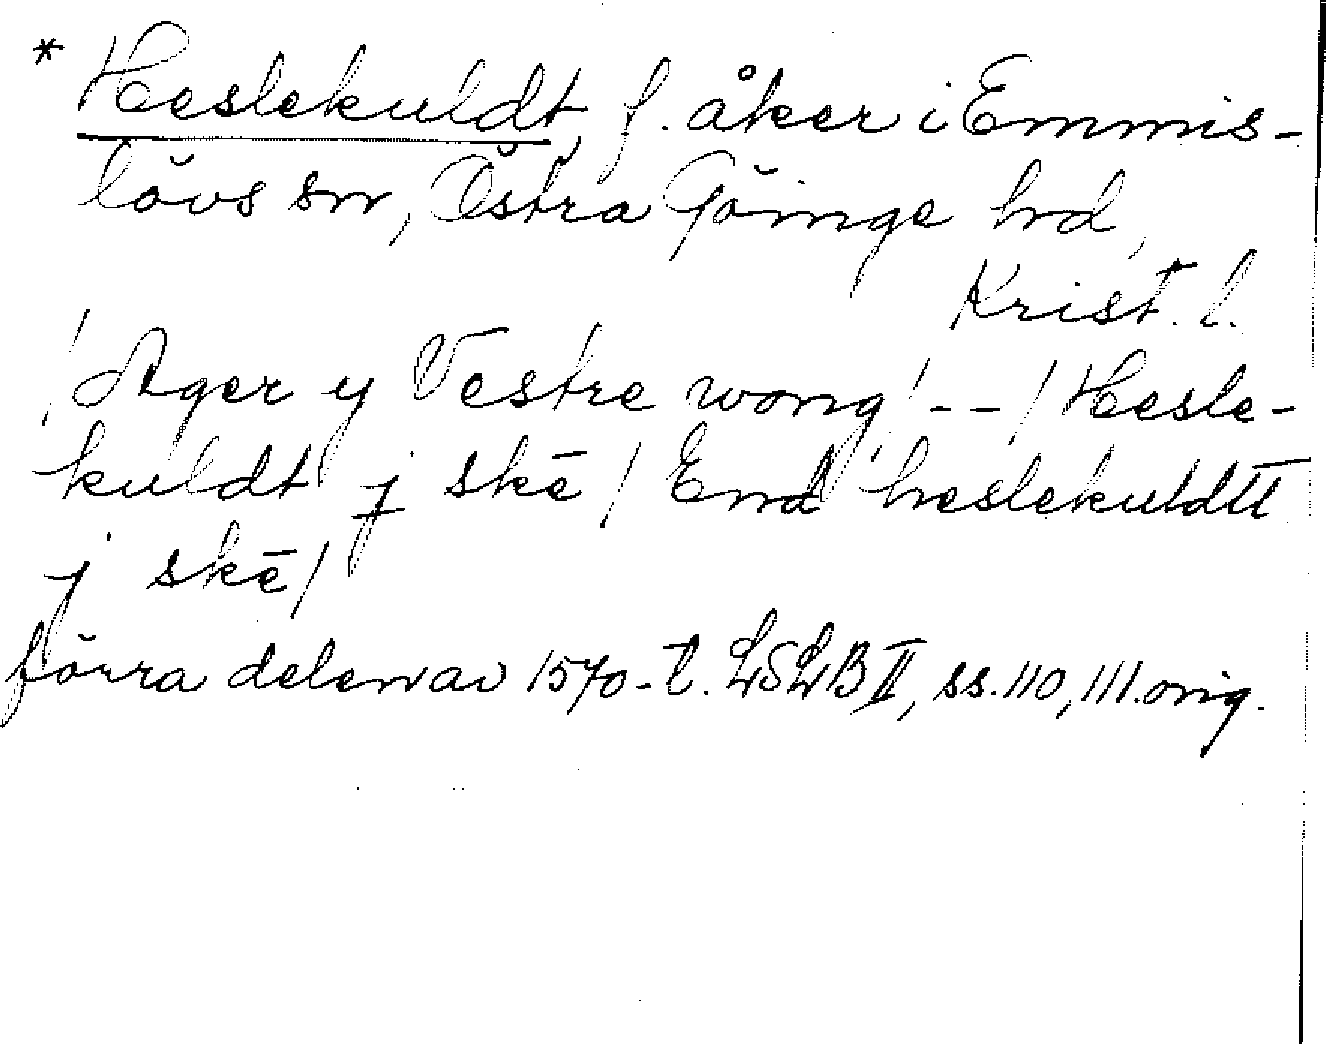 * Heslekuldt, f. åker i Emmis-
lövs sn, Östra Göinge hd,
Krist. l.
! Ager y Vestre wong! -- / Hesle-
kuldt j skē / End heslekuldtt
j skē /
förra delen av 1570-t. LSLB II, ss. 110, 111. orig.